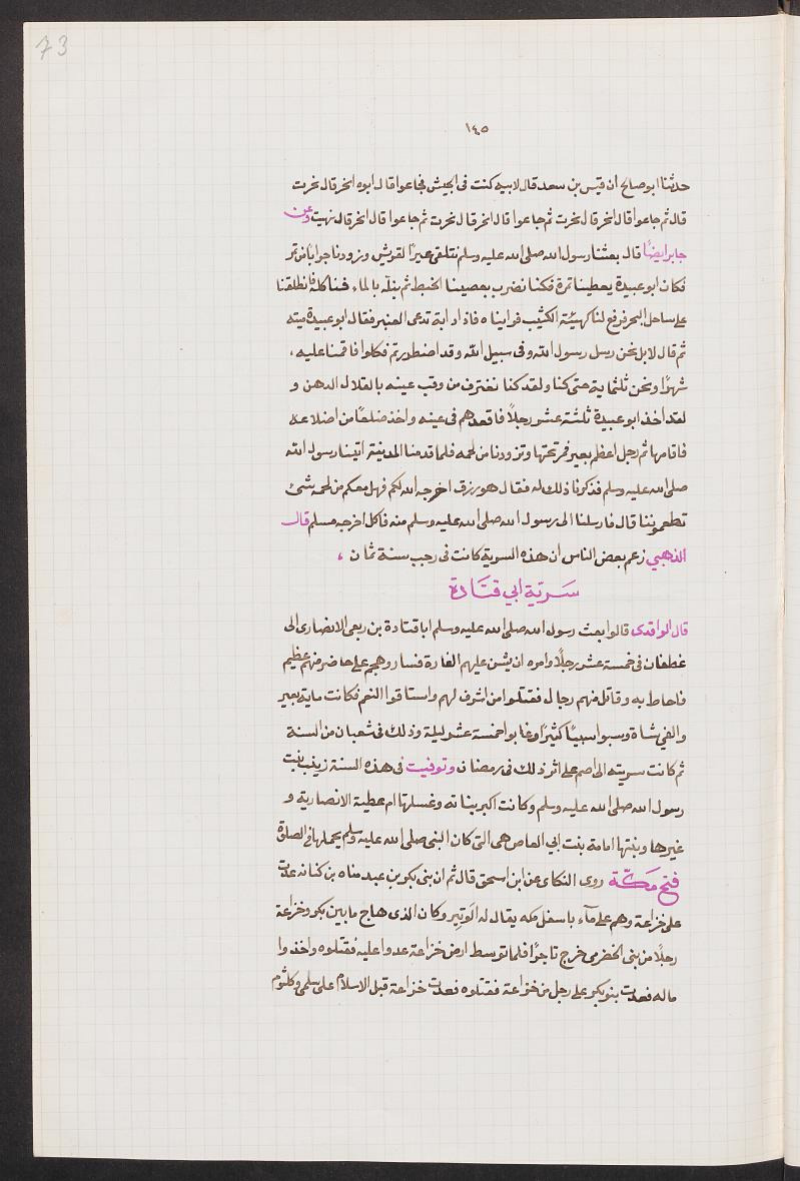 73
١٤٥
حدثنا ابو صالح ان قيس بن سعد قال لابيه كنت فى الجيش فجاعوا قال ابوه انحر قال نحرت
قال ثم جاعوا قال انحر قال نحرت ثم جاعوا قال انحر قال نحرت ثم جاعوا قال انحر قال نهيت وعن
جابر ايضًا قال بعثنا رسول الله صلى الله عليه وسلم نتلقى عيرًا لقريش وزودنا جرابا من تمر
فكان ابو عبيدة يعطينا تمرة تمرة فكنا نضرب بعصينا الخبط ثم نبله بالماء فناكله فانطلقنا
على ساحل البحر فرفع لنا كهيئة الكثيب فاتيناه فاذا دابة تدعى العنبر فقال ابو عبيدة ميته
ثم قال لا بل نحن رسل رسول الله وفى سبيل الله وقد اضطررتم فكلوا فاقمنا عليه ،
شهرًا ونحن ثلثماية حتى سمنا ولقد كنا نغترف من وقب عينه بالقلال الدهن و
لقد اخذ ابو عبيدة ثلثة عشر رجلاً فاقعدهم فى عينه واخذ ضلعًا من اضلاعه
فاقامها ثم رحل اعظم بعير فمر تحتها وتزودنا من لحمه فلما قدمنا المدينة اتينا رسول الله
صلى الله عليه وسلم فذكرنا ذلك له فقال هو رزق اخرجه الله لكم فهل معكم من لحمه شئ
تطعموننا قال فارسلنا الى رسول الله صلى الله عليه وسلم منه فاكل اخرجه مسلم قال
الذهبي زعم بعض الناس ان هذه السرية كانت فى رجب سنة ثمان ،
سَريّة ابي قتَادة
قال الواقدى قالوا بعث رسول الله صلى الله عليه وسلم ابا قتادة بن ربعى الانصارى الى
غطفان فى خمسة عشر رجلًا وامره ان يشن عليهم الغارة فسار وهجم على حاضر منهم عظيم
فاحاط به وقاتل منهم رجال فقتلوا من اشرف لهم واستاقوا النعم فكانت مايتى بعير
والفي شاة وسبوا سبيًا كثيرًا وغابوا خمسة عشر ليلة وذلك فى شعبان من السنة
ثم كانت سريته الى اضم على اثر ذلك فى رمضان وتوفيت فى هذه السنة زينب بنت
رسول الله صلى الله عليه وسلم وكانت اكبر بناته وغسلتها ام عطية الانصارية و
غيرها وبنتها امامة بنت ابي العاص هى التى كان النبى صلى الله عليه وسلم يحملها فى الصلاة
فتح مكّة روى البكاى عن ابن اسحق قال ثم ان بنى بكر بن عبد مناه بن كنانه عدت
على خزاعة وهم على مآء باسفل مكه يقال له الوتير وكان الذى هاج ما بين بكر وخزاعة
رجلًا من بنى الحضرمى خرج تاجرًا فلما توسط ارض خزاعة عدوا عليه فقتلوه واخذوا
ماله فعدت بنو بكر على رجل من خزاعة فقتلوه فعدت خزاعة قبل الاسلام على سلمى وكلثوم